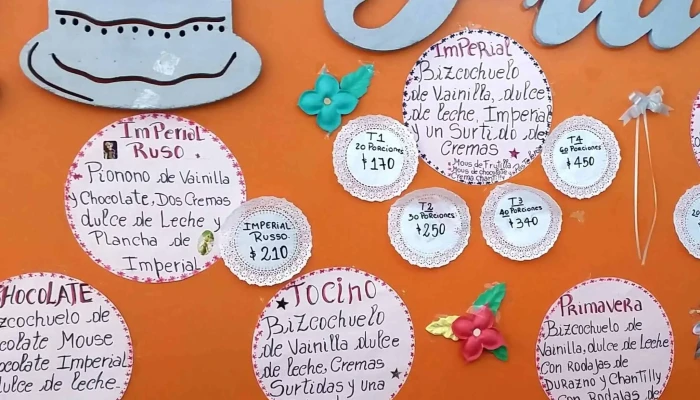 ImPerial
Ruso
Pionono de Vainilla
y Chocolate, Dos Cremas
dulce de Leche y
Plancha de
Imperial
IMPERIAL
RUSSO
$210
ImPErial
BizcochuElo
de Vainilla, dulce
de leche, Imperial
y un Surtido de
Cremas
Mous de Frutilla
Mous de chocolate
Crema
T1
20 PORCIONES
$170
T2
30 PORCIONES
$250
T3
40 PORCIONES
$340
T4
60 PORCIONES
$450
HOCOLATE
zcochuelo de
colate Mouse
colate Imperial
ulce de leche.
Tocino
BizcochuElo
de Vainilla dulce
de leche, Cremas
Surtidas y una
Primavera
Bizcochuelo de
Vainilla, dulce de Leche
Con Rodajas de
Durazno y Chantilly
Con Rodalas de